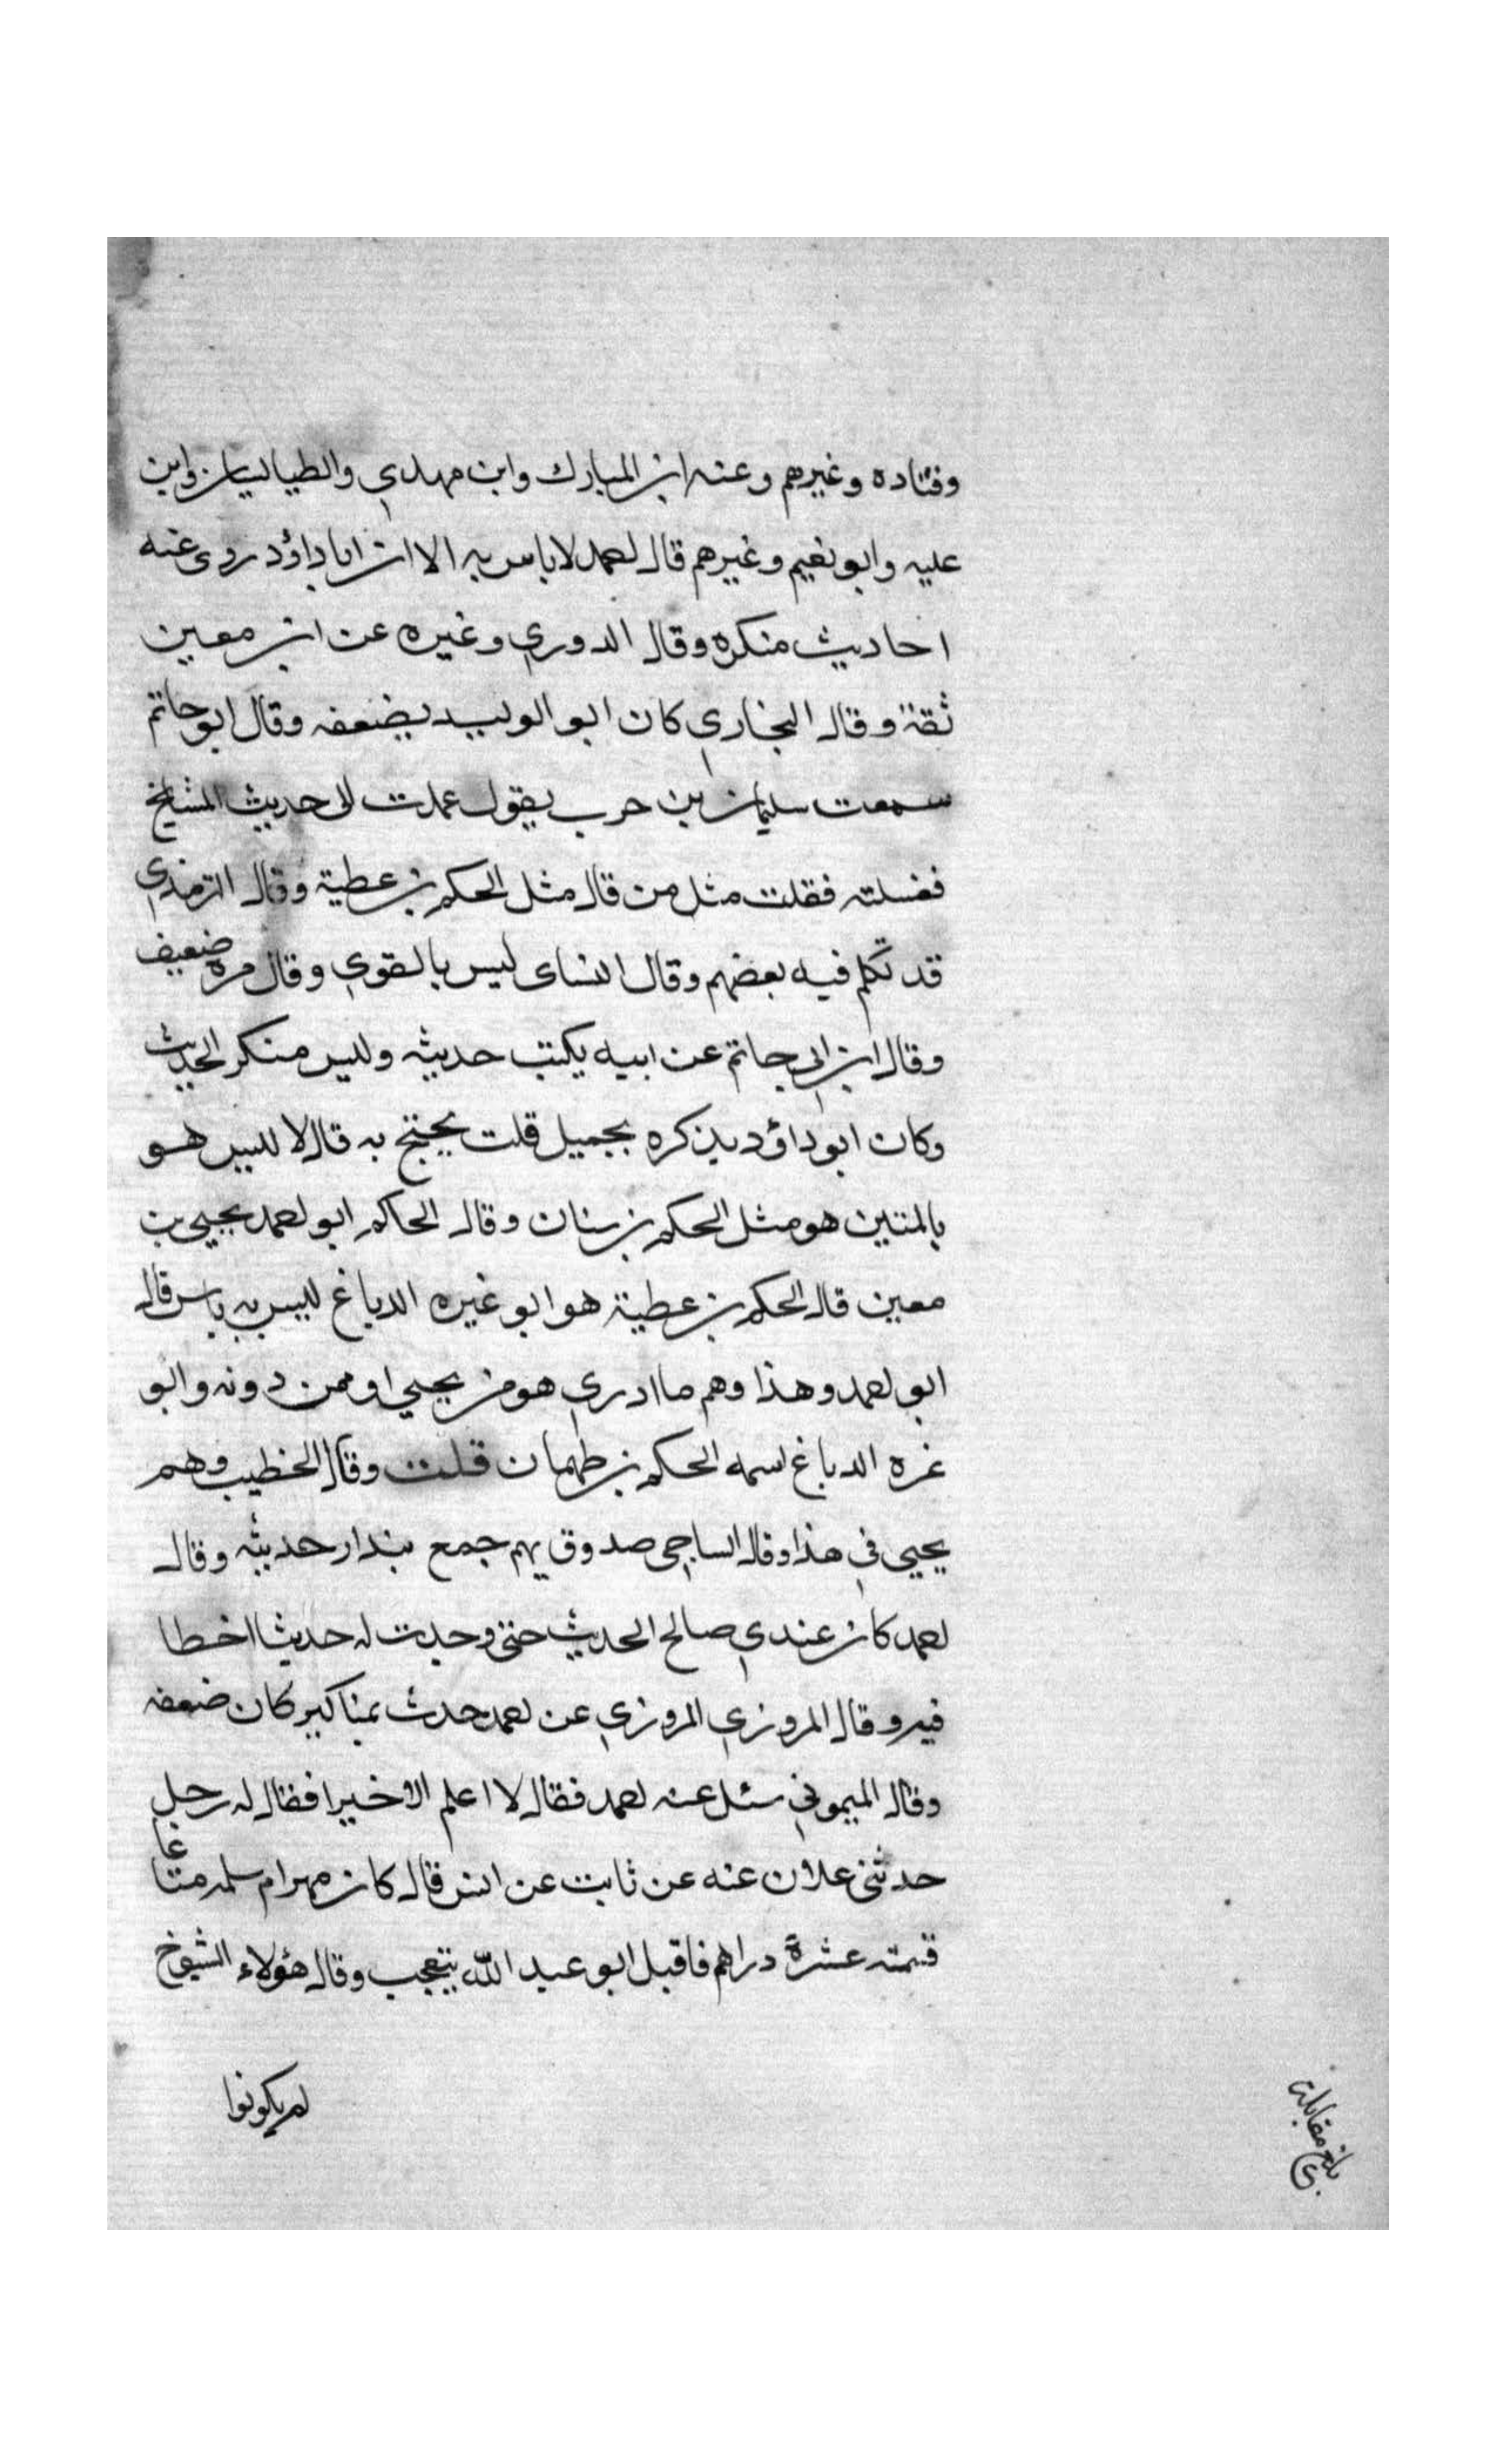 وقتاده وغيرهم وعنه ابن المبارك وابن مهدي والطيالسيان وابن
عليه وابو نعيم وغيرهم قال احمد لا باس به الا ان ابا داؤد روى عنه
احاديث منكره وقال الدوري وغيره عن ابن معين
ثقة وقال البخاري كان ابو الوليد يضعفه وقال ابو حاتم
سمعت سليمان بن حرب يقول عمدت الى حديث المشايخ
فغسلته فقلت مثل من قال مثل الحكم بن عطية وقال الترمذي
قد تكلم فيه بعضهم وقال النساى ليس بالقوي وقال مره ضعيف
وقال ابن ابي حاتم عن ابيه يكتب حديثه وليس منكر الحديث
وكان ابو داؤد يذكره بجميل قلت يحتج به قال لا ليس هو
بالمتين هو مثل الحكم بن سنان وقال الحاكم ابو احمد يحيى بن
معين قال الحكم بن عطية هو ابو غيره الدباغ ليس به باس قال
ابو احمد وهذا وهم ما ادري هو من يحيي او ممن دونه وابو
غره الدباغ اسمه الحكم بن طهمان قلت وقال الخطيب وهم
يحيي في هذا وقال الساجي صدوق يهم جمع بندار حديثه وقال
احمد كان عندي صالح الحديث حتى وجدت له حديثا اخطا
فيه وقال المروزي المروزي عن احمد حدث بمناكير كان ضعفه
وقال الميموني سئل عنه احمد فقال لا اعلم الا خيرا فقال له رجل
حدثني علان عنه عن ثابت عن انس قال كان مهر ام سلمه متاعا
قيمته عشرة دراهم فاقبل ابو عبد الله يتعجب وقال هؤلاء الشيوخ
لم يكونوا
بلغ مقابلة